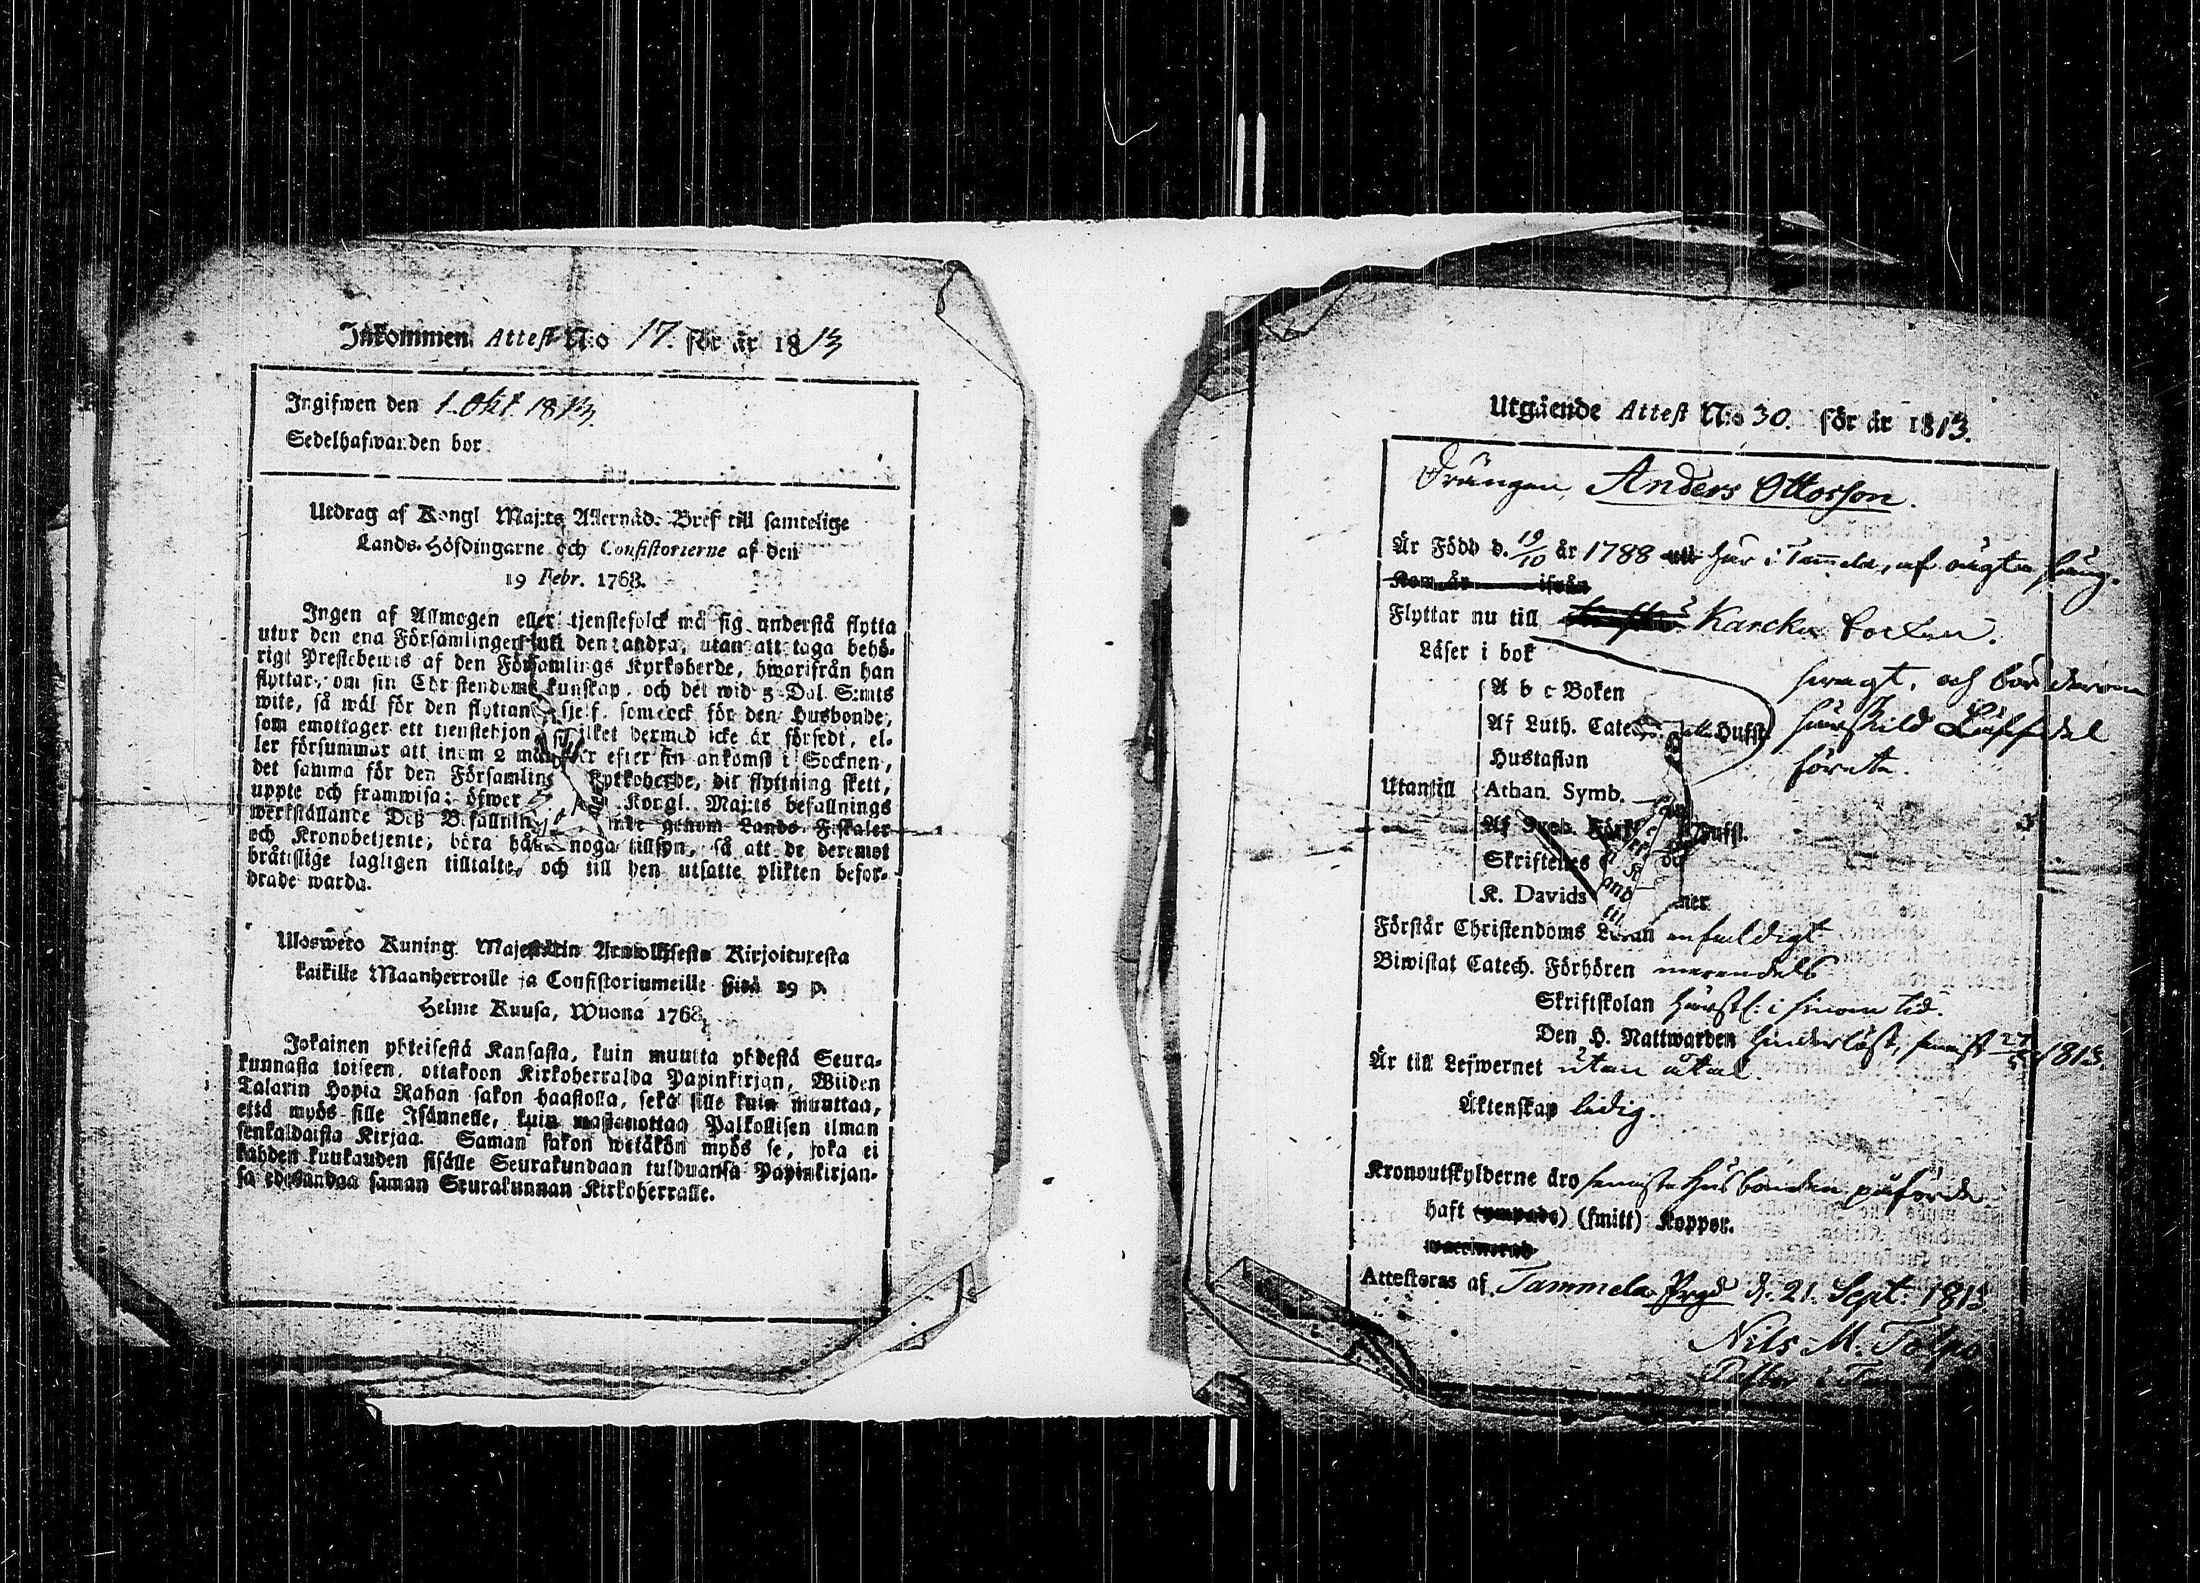 Inkommen Attest N:o 17. för år 1813
Ingifwen den 1. Okt 1813.
Sedelhafwanden bor
Utdrag af Kongl Maj:ts Allernåd. Bref till samtelige
Lands-Höfdingarne och Consistorierne af den
19 Febr. 1768.
Ingen af Allmogen eller tjenstefolck må sig understå flytta
utur den ena Församlingen inti den andra, utan att taga behö-
rigt Prestebewis af den Församlings Kyrkoherde, hwarifrån han
flyttar, om sin Christendoms kunskap, och det wid 5 Dal. S:mts
wite, så wäl för den flyttan sjelf, som ock för den Husbonde,
som emottager ett tjenstehjon hwilket dermed icke är försedt, el-
ler försummar att inom 2 månader efter sin ankomst i Socknen,
det samma för den Församling Kyrkoherde, dit flyttning skett,
uppte och framwisa; öfwer Kongl. Maj:ts befallnings
werkställande Deß Befallnin genom Lands Fiskaler
och Kronobetjente, böra hå noga tillsyn, så att de deremot
bråttslige lagligen tilltaltes och till den utsatte plikten befor-
drade warda.
Uloswето Kuning. Majestätin Armollisesta Kirjoituxesta
kaikille Maanherroille ja Consistoriumeille siitä 19 p.
Helme Kuusa, Wuona 1768.
Jokainen yhteisestä Kansasta, kuin muutta yhdestä Seura-
kunnasta toiseen, ottakoon Kirkoherralda Papinkirjan, Wiiden
Talarin Hopia Rahan sakon haastolla, sekä sille kuin muuttaa,
että myös sille Isännelle, kuin wastanottaa Palkollisen ilman
senkaldaista Kirjaa. Saman sakon wetäkön myös se, joka ei
kahden kuukauden sisälle Seurakundaan tulduansa Papinkirjan-
sa edesandaa saman Seurakunnan Kirkoherralle.
Utgående Attest N:o 30. för år 1813.
Drängen, Anders Ottosson.
Är Född d. 19/10 år 1788 här i Tammela, af ägta säng.
Kom år ifrån
Flyttar nu till Karcku socken.
Läser i bok swagt, och bör derom
A b c Boken särskild Läsesedel
Af Luth. Catech. förete.
Hustaflan
Utantill Athan. Symb.
Af Sveb. Förkl
Skriftenes
K. Davids
Förstår Christendoms Läran enfaldigt
Biwistat Catech. Förhören merendels
Skriftskolan särsk. i sinom tid.
Den H. Nattwarden hinderlöst, senast 27/5 1813.
Är till Lefwernet utan åtal.
Äktenskap ledig.
Kronoutskylderne äro senaste husbonden påförde
haft (ympade) (smitt) Koppor.
waccinerad
Attesteras af Tammela Prgd d. 21. Sept. 1813
Nils M. Tolpo